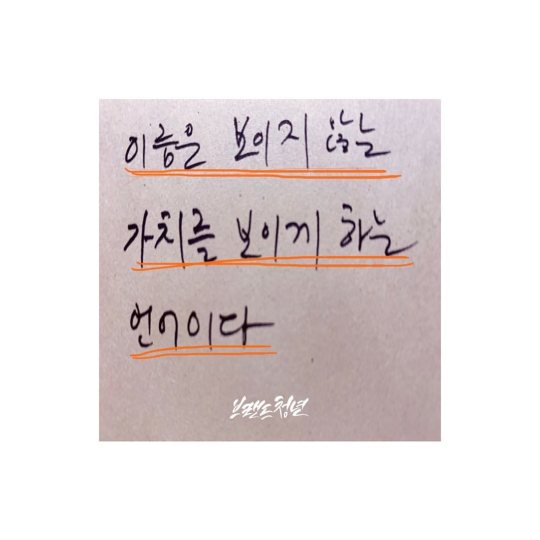 이름은 보이지 않는
가치를 보이게 하는
언어이다
브랜드청년